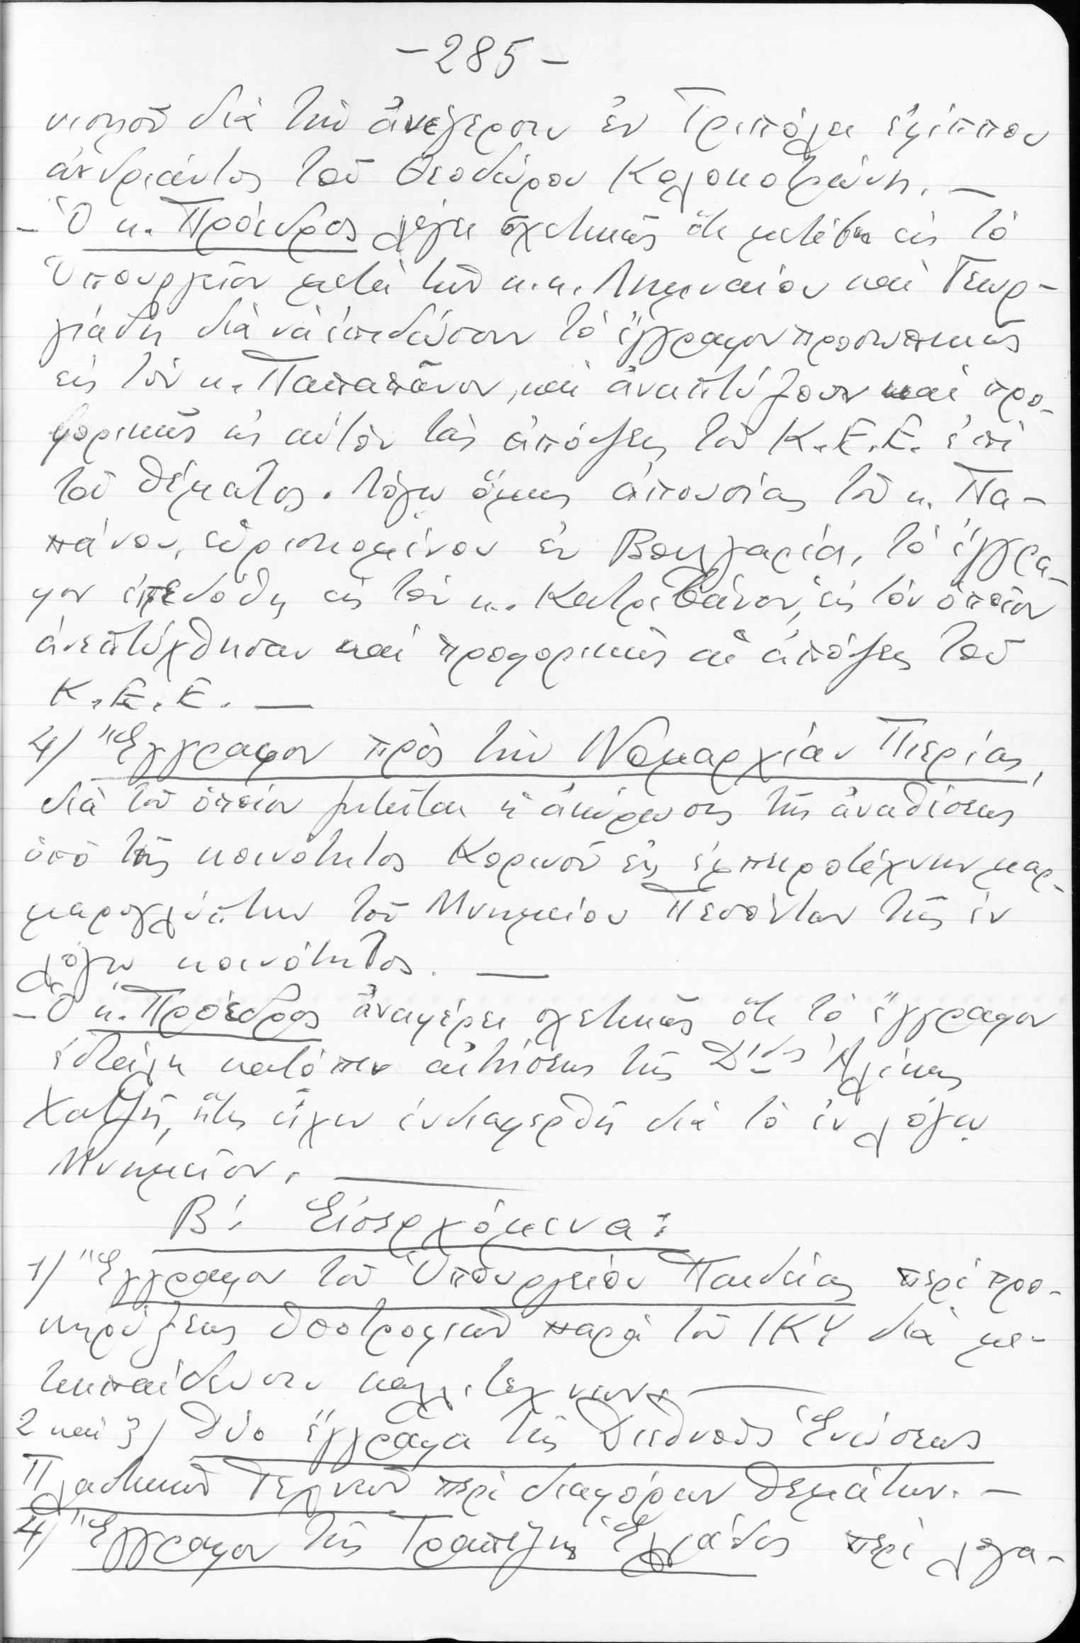 -285-
νισμοῦ διὰ τὴν ἀνέγερσιν ἐν Τριπόλει ἐφίππου
ἀνδριάντος τοῦ Θεοδώρου Κολοκοτρώνη. —
- Ὁ κ. Πρόεδρος λέγει σχετικῶς ὅτι μετέβη εἰς τὸ
Ὑπουργεῖον μετὰ τῶν κ.κ. Λημναίου καὶ Γεωρ-
γιάδη διὰ νὰ ἐπιδώσουν τὸ ἔγγραφον προσωπικῶς
εἰς τὸν κ. Παπαπάνον, καὶ ἀναπτύξουν καὶ προ-
φορικῶς εἰς αὐτὸν τὰς ἀπόψεις τοῦ Κ.Ε.Ε. ἐπὶ
τοῦ θέματος. Λόγῳ ὅμως ἀπουσίας τοῦ κ. Πα-
πάνου, εὑρισκομένου ἐν Βουλγαρίᾳ, τὸ ἔγγρα-
φον ἐπεδόθη εἰς τὸν κ. Κατριβάνον, εἰς τὸν ὁποῖον
ἀνεπτύχθησαν καὶ προφορικῶς αἱ ἀπόψεις τοῦ
Κ.Ε.Ε. —
4/ Ἔγγραφον πρὸς τὴν Νομαρχίαν Πιερίας,
διὰ τοῦ ὁποίου ζητεῖται ἡ ἀκύρωσις τῆς ἀναθέσεως
ὑπὸ τῆς κοινότητος Κορινοῦ εἰς ἐμπειροτέχνην μαρ-
μαρογλύπτην τοῦ Μνημείου Πεσόντων τῆς ἐν
λόγῳ κοινότητος. —
- Ὁ κ. Πρόεδρος ἀναφέρει σχετικῶς ὅτι τὸ ἔγγραφον
ἐστάλη κατόπιν αἰτήσεως τῆς Δίδος Ἀλίκης
Χατζῆ, ἥτις εἶχεν ἐνδιαφερθῆ διὰ τὸ ἐν λόγῳ
Μνημεῖον. —
Β! Εἰσερχόμενα:
1/ Ἔγγραφον τοῦ Ὑπουργείου Παιδείας περὶ προ-
κηρύξεως ὑποτροφιῶν παρὰ τοῦ ΙΚΥ διὰ με-
τεκπαίδευσιν καλλιτεχνῶν. —
2 καὶ 3/ Δύο ἔγγραφα τῆς Διεθνοῦς Ἑνώσεως
Πλαστικῶν Τεχνῶν περὶ διαφόρων θεμάτων. —
4/ Ἔγγραφον τῆς Τραπέζης Ἑλλάδος περὶ λογα-